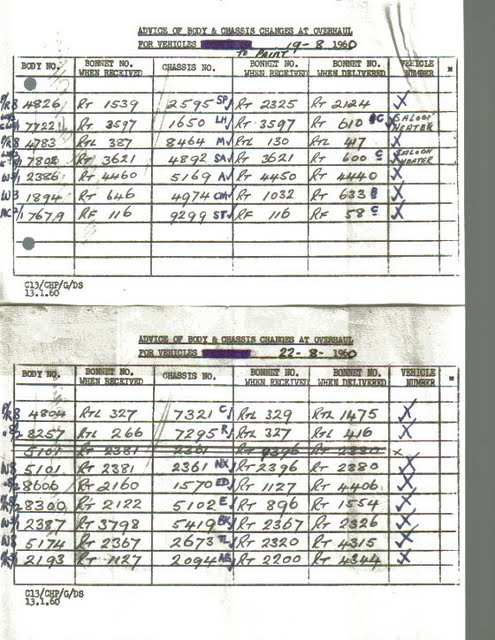 ADVICE OF BODY & CHASSIS CHANGES AT OVERHAUL
FOR VEHICLES 19-8- 1960
TO PAINT
BODY NO. BONNET NO. WHEN RECEIVED CHASSIS NO. BONNET NO. WHEN RECEIVED BONNET NO. WHEN DELIVERED VEHICLE NUMBER
4826 RT 1539 2595 SP RT 2325 RT 2124 X
7722 RT 3597 1650 LH RT 3597 RT 610 C SALOON HEATER
P/R8 4783 RTL 387 8464 M RTL 130 RTL 417 X
7802 RT 3621 4892 SA RT 3621 RT 600 C SALOON HEATER
2386 RT 4460 5169 A RT 4450 RT 4440 X
W3 1894 RT 646 4974 RT 1032 RT 633 X
7679 RF 116 9299 ST RF 116 RF 58 C X
C13/CHP/G/DS
13.1.60
ADVICE OF BODY & CHASSIS CHANGES AT OVERHAUL
FOR VEHICLES 22-8- 1960
BODY NO. BONNET NO. WHEN RECEIVED CHASSIS NO. BONNET NO. WHEN RECEIVED BONNET NO. WHEN DELIVERED VEHICLE NUMBER
P/R8 4804 RTL 327 7321 C RTL 329 RTL 1475 X
8257 RTL 266 7295 R RTL 327 RTL 416 X
5101 RT 2381 2361 RT 2396 RT 2380 x
W8 5101 RT 2381 2361 NX RT 2396 RT 2380 X
8606 RT 2160 1570 ED RT 1127 RT 4406 X
8300 RT 2122 5102 E RT 896 RT 1554 X
2387 RT 3798 5419 RT 2367 RT 2326 X
W8 5174 RT 2367 2673 TL RT 2320 RT 4315 X
2193 RT 1127 2094 RT 2200 RT 4344 X
C13/CHP/G/DS
13.1.60